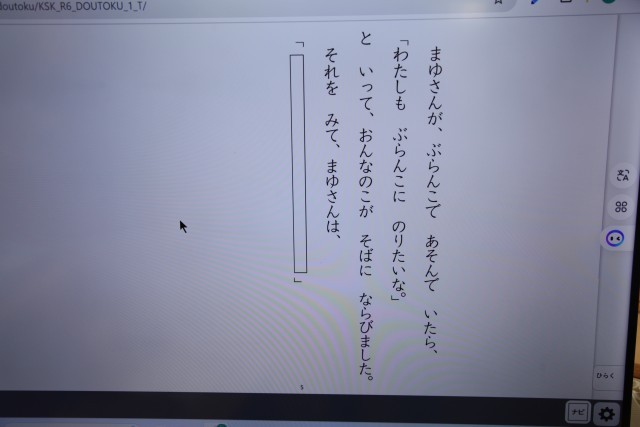 doutoku/KSK_R6_DOUTOKU_1_T/
まゆさんが、ぶらんこで あそんで いたら、
「わたしも ぶらんこに のりたいな。」
と いって、おんなのこが そばに ならびました。
それを みて、まゆさんは、
「 」
5
ひらく
ナビ